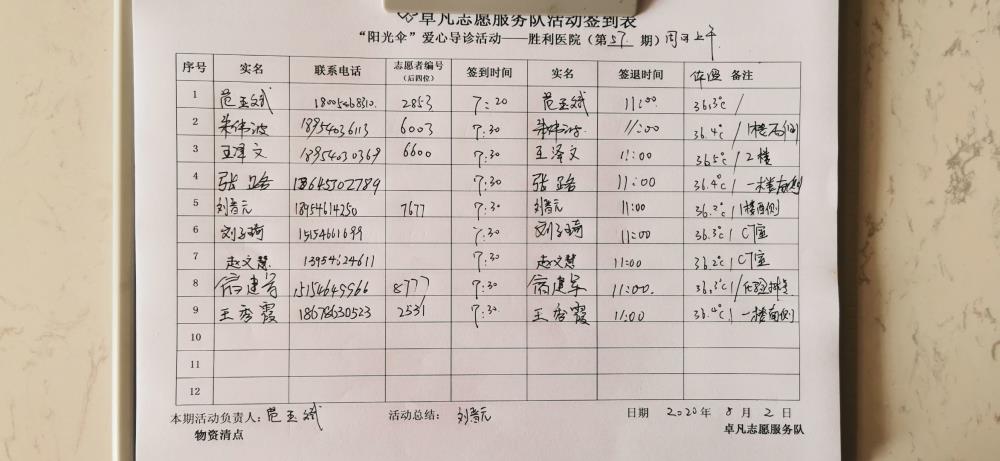 卓凡志愿服务队活动签到表
“阳光伞”爱心导诊活动——胜利医院（第57期）周日上午
序号 实名 联系电话 志愿者编号（后四位） 签到时间 实名 签退时间 体温 备注
1 范玉斌 18005468310 2853 7:20 范玉斌 11:00 36.3℃ /
2 朱伟波 18954036113 6003 7:30 朱伟波 11:00 36.4℃ / 1楼西侧
3 王泽文 18954030369 6600 7:30 王泽文 11:00 36.5℃ / 2楼
4 张路 18645502789 7:30 张路 11:00 36.4℃ / 一楼南侧
5 刘春元 18954614250 7677 7:30 刘春元 11:00 36.2℃ / 1楼西侧
6 刘子琦 15154661699 7:30 刘子琦 11:00 36.3℃ / CT室
7 赵文慧 13954624611 7:30 赵文慧 11:00 36.2℃ / CT室
8 宿建军 15154649966 8777 7:30 宿建军 11:00. 36.3℃ /
9 王秀霞 18678630523 2531 7:30 王秀霞 11:00 36.4℃ / 一楼南侧
10
11
12
本期活动负责人：范玉斌 活动总结：刘春元 日期 2020年8月2日
物资清点 卓凡志愿服务队